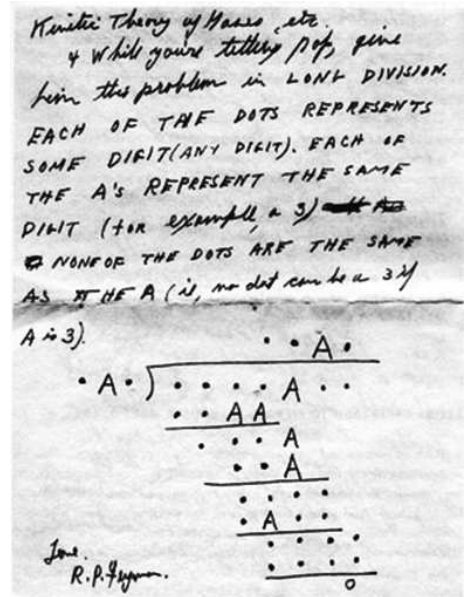 Kinetic Theory of Gases, etc.
& While you're telling Pop, give
him this problem in LONG DIVISION.
EACH OF THE DOTS REPRESENTS
SOME DIGIT (ANY DIGIT). EACH OF
THE A'S REPRESENT THE SAME
DIGIT (for example, a 3)
NONE OF THE DOTS ARE THE SAME
AS THE A (ie, no dot can be a 3 if
A is 3).
. . A .
. A . ) . . . . A . .
. . A A
. . . A
. . A
. . . .
. A . .
. . . .
. . . .
0
Love.
R.P. Feynman.